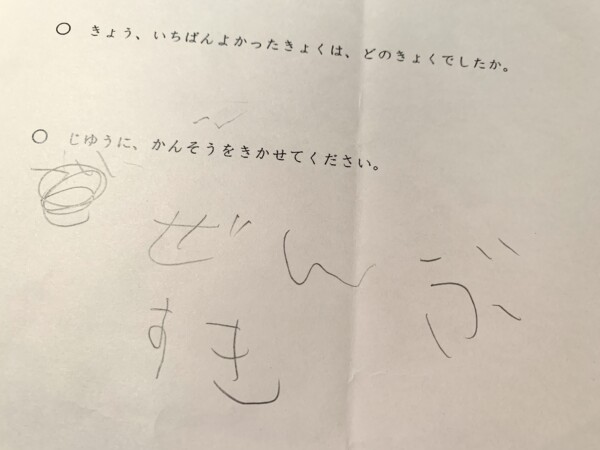 ○ きょう、いちばんよかったきょくは、どのきょくでしたか。
○ じゆうに、かんそうをきかせてください。
ぜんぶ
すき